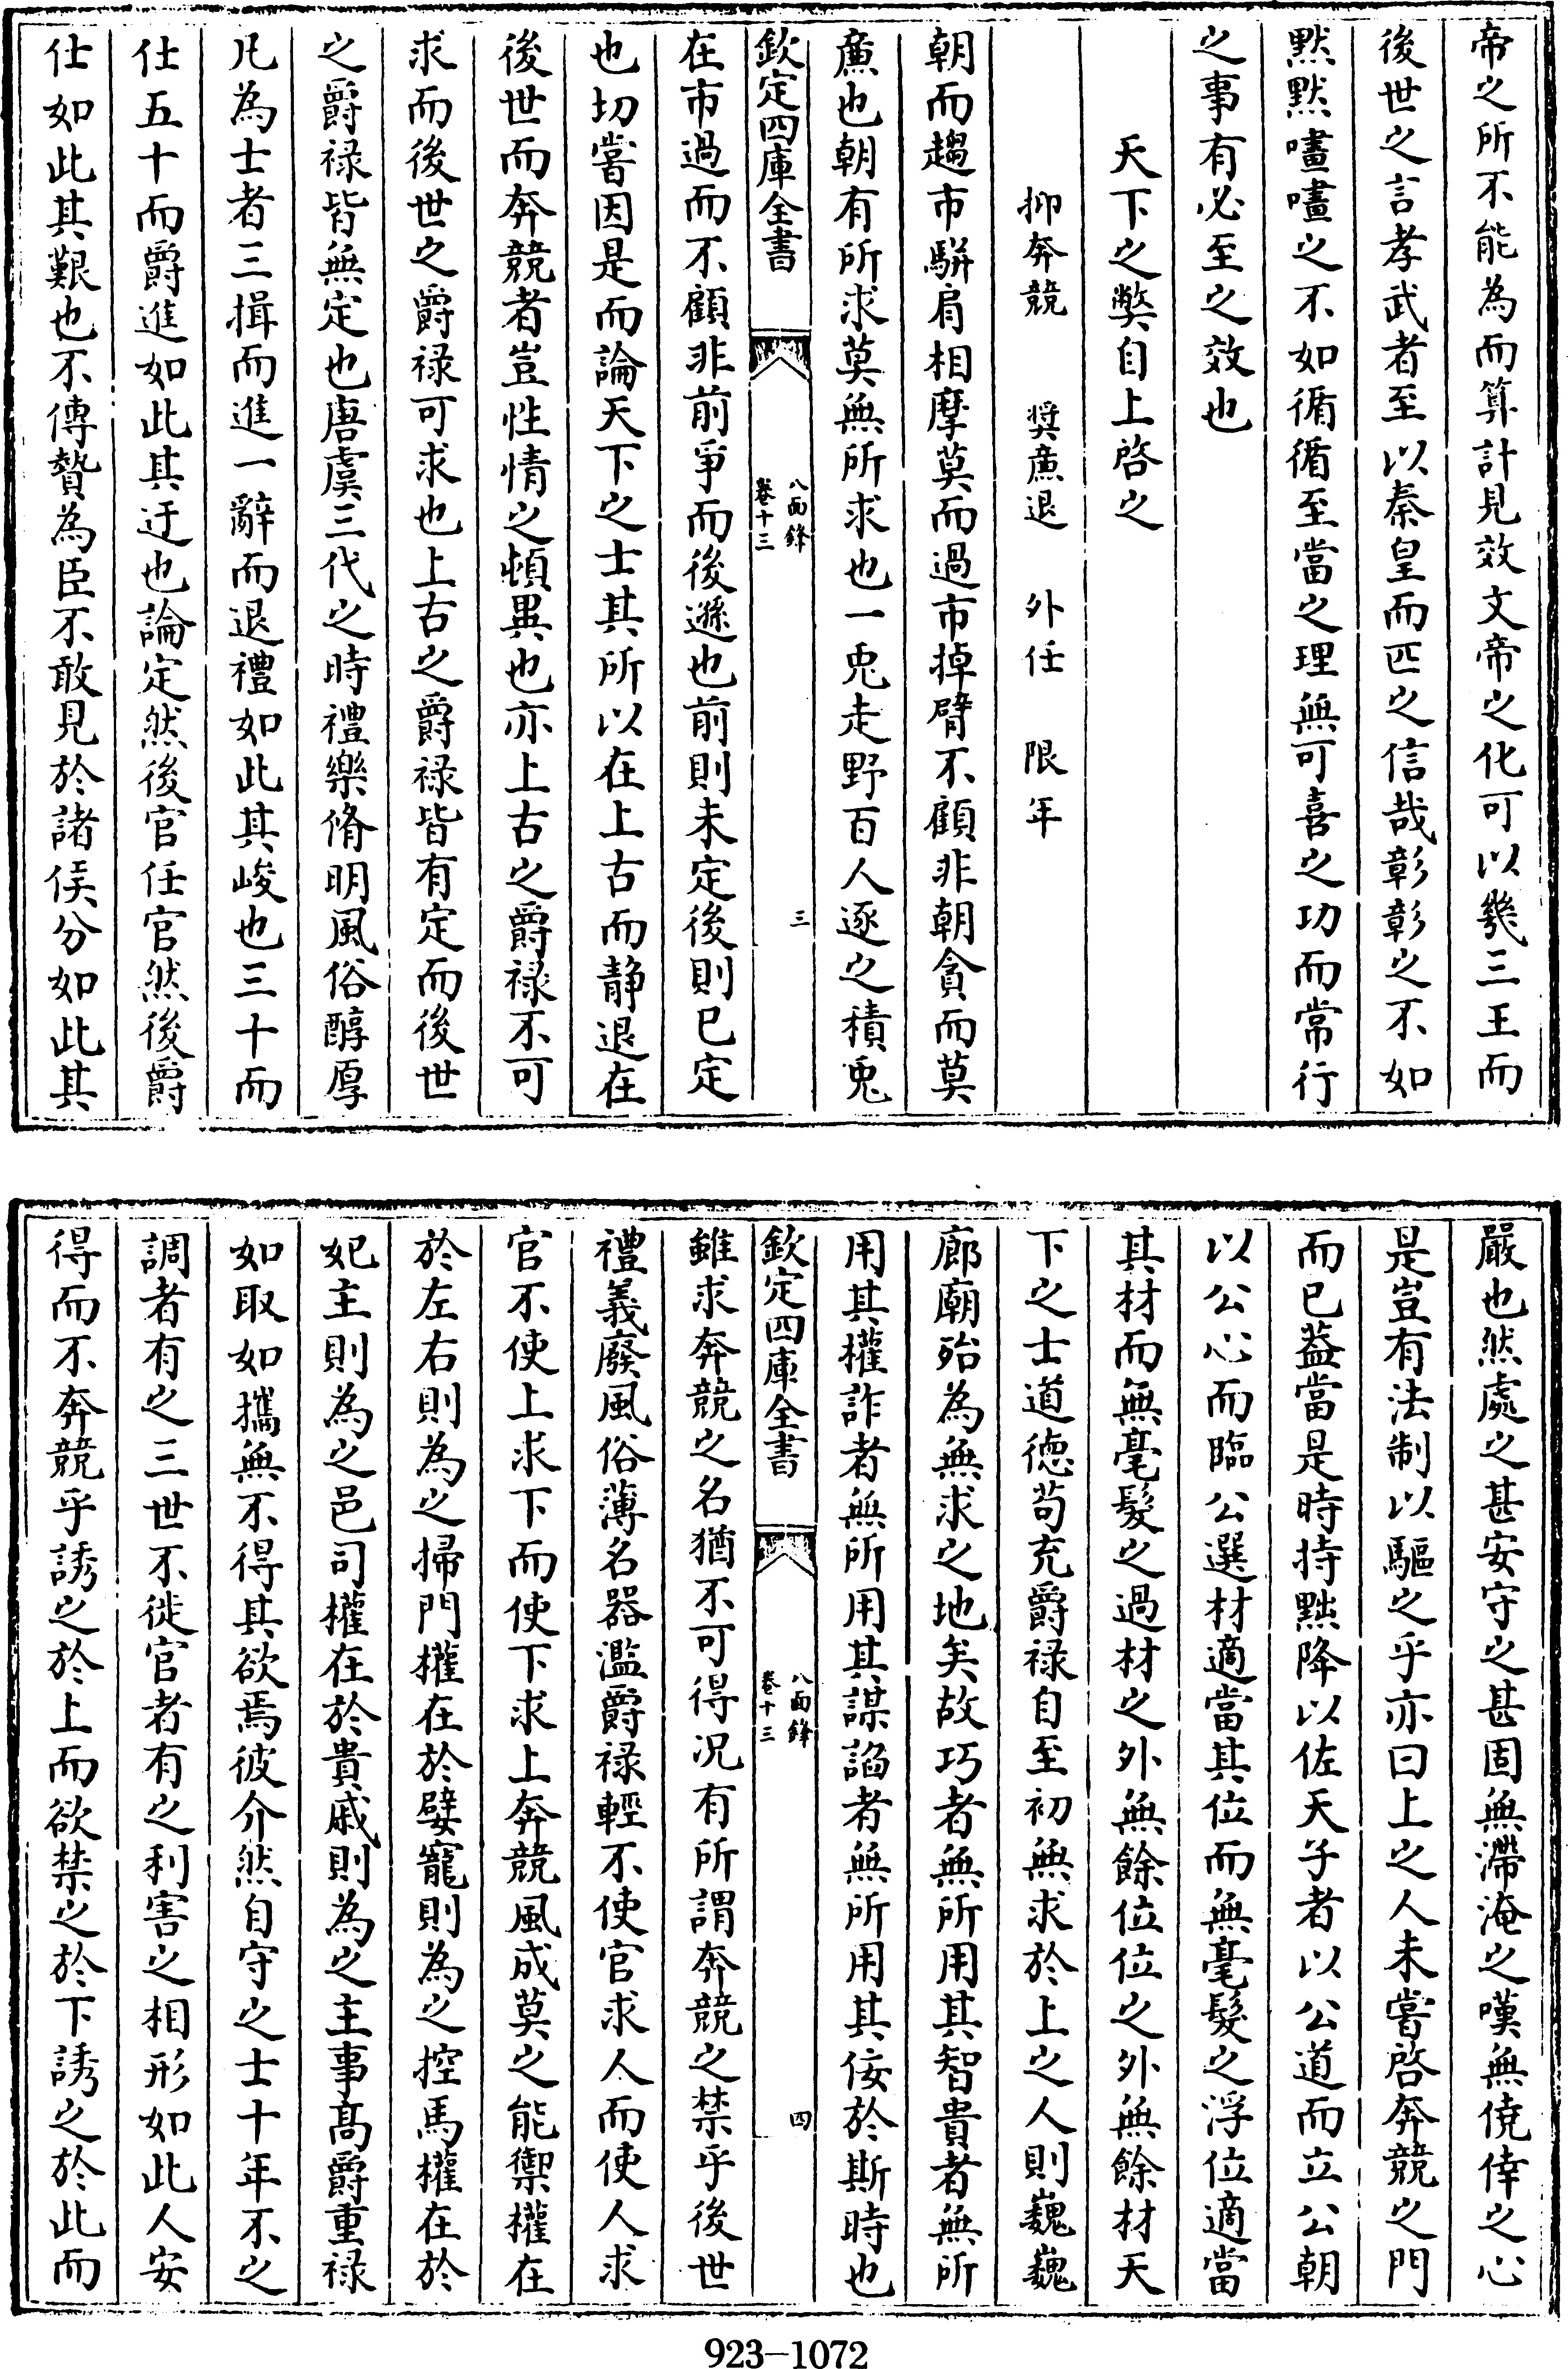 帝之所不能為而算計見效文帝之化可以幾三王而
後世之言孝武者至以秦皇而匹之信哉彰彰之不如
黙黙㬠㬠之不如循循至當之理無可喜之功而常行
之事有必至之效也
天下之弊自上啓之
抑奔競 奨亷退 外任 限年
朝而趨市駢肩相摩莫而過市掉臂不顧非朝貪而莫
亷也朝有所求莫無所求也一兎走野百人逐之積兎
欽定四庫全書
八面鋒
卷十三
三
在市過而不顧非前爭而後遜也前則未定後則已定
也切嘗因是而論天下之士其所以在上古而静退在
後世而奔競者豈性情之頓異也亦上古之爵禄不可
求而後世之爵禄可求也上古之爵禄皆有定而後世
之爵禄皆無定也唐虞三代之時禮樂脩明風俗醇厚
凡為士者三揖而進一辭而退禮如此其峻也三十而
仕五十而爵進如此其迂也論定然後官任官然後爵
仕如此其艱也不傳贄為臣不敢見於諸侯分如此其
嚴也然處之甚安守之甚固無滯淹之嘆無僥倖之心
是豈有法制以驅之乎亦曰上之人未嘗啓奔競之門
而已葢當是時持黜降以佐天子者以公道而立公朝
以公心而臨公選材適當其位而無毫髮之浮位適當
其材而無毫髮之過材之外無餘位位之外無餘材天
下之士道徳茍充爵禄自至初無求於上之人則巍巍
廊廟殆為無求之地矣故巧者無所用其智貴者無所
用其權詐者無所用其謀諂者無所用其佞於斯時也
欽定四庫全書
八面鋒
卷十三
四
雖求奔競之名猶不可得况有所謂奔競之禁乎後世
禮義廢風俗薄名器濫爵禄輕不使官求人而使人求
官不使上求下而使下求上奔競風成莫之能禦權在
於左右則為之掃門權在於嬖寵則為之控馬權在於
妃主則為之邑司權在於貴戚則為之主事髙爵重禄
如取如攜無不得其欲焉彼介然自守之士十年不之
調者有之三世不徙官者有之利害之相形如此人安
得而不奔競乎誘之於上而欲禁之於下誘之於此而
923-1072